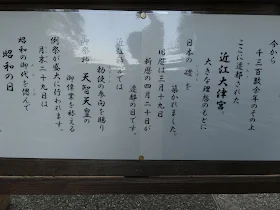 今から
千三百数余年のその上
ここに遷都された
近江大津宮
大きな理想のもとに
日本の礎を
築かれました。
旧暦は三月十九日
新暦の四月二十日が
遷都の日です。
では
勅使の参向を賜り
御祭神 天智天皇の
御偉業を称える
例祭が盛大に行われます。
月末二十九日は
昭和の御代を偲んで
昭和の日